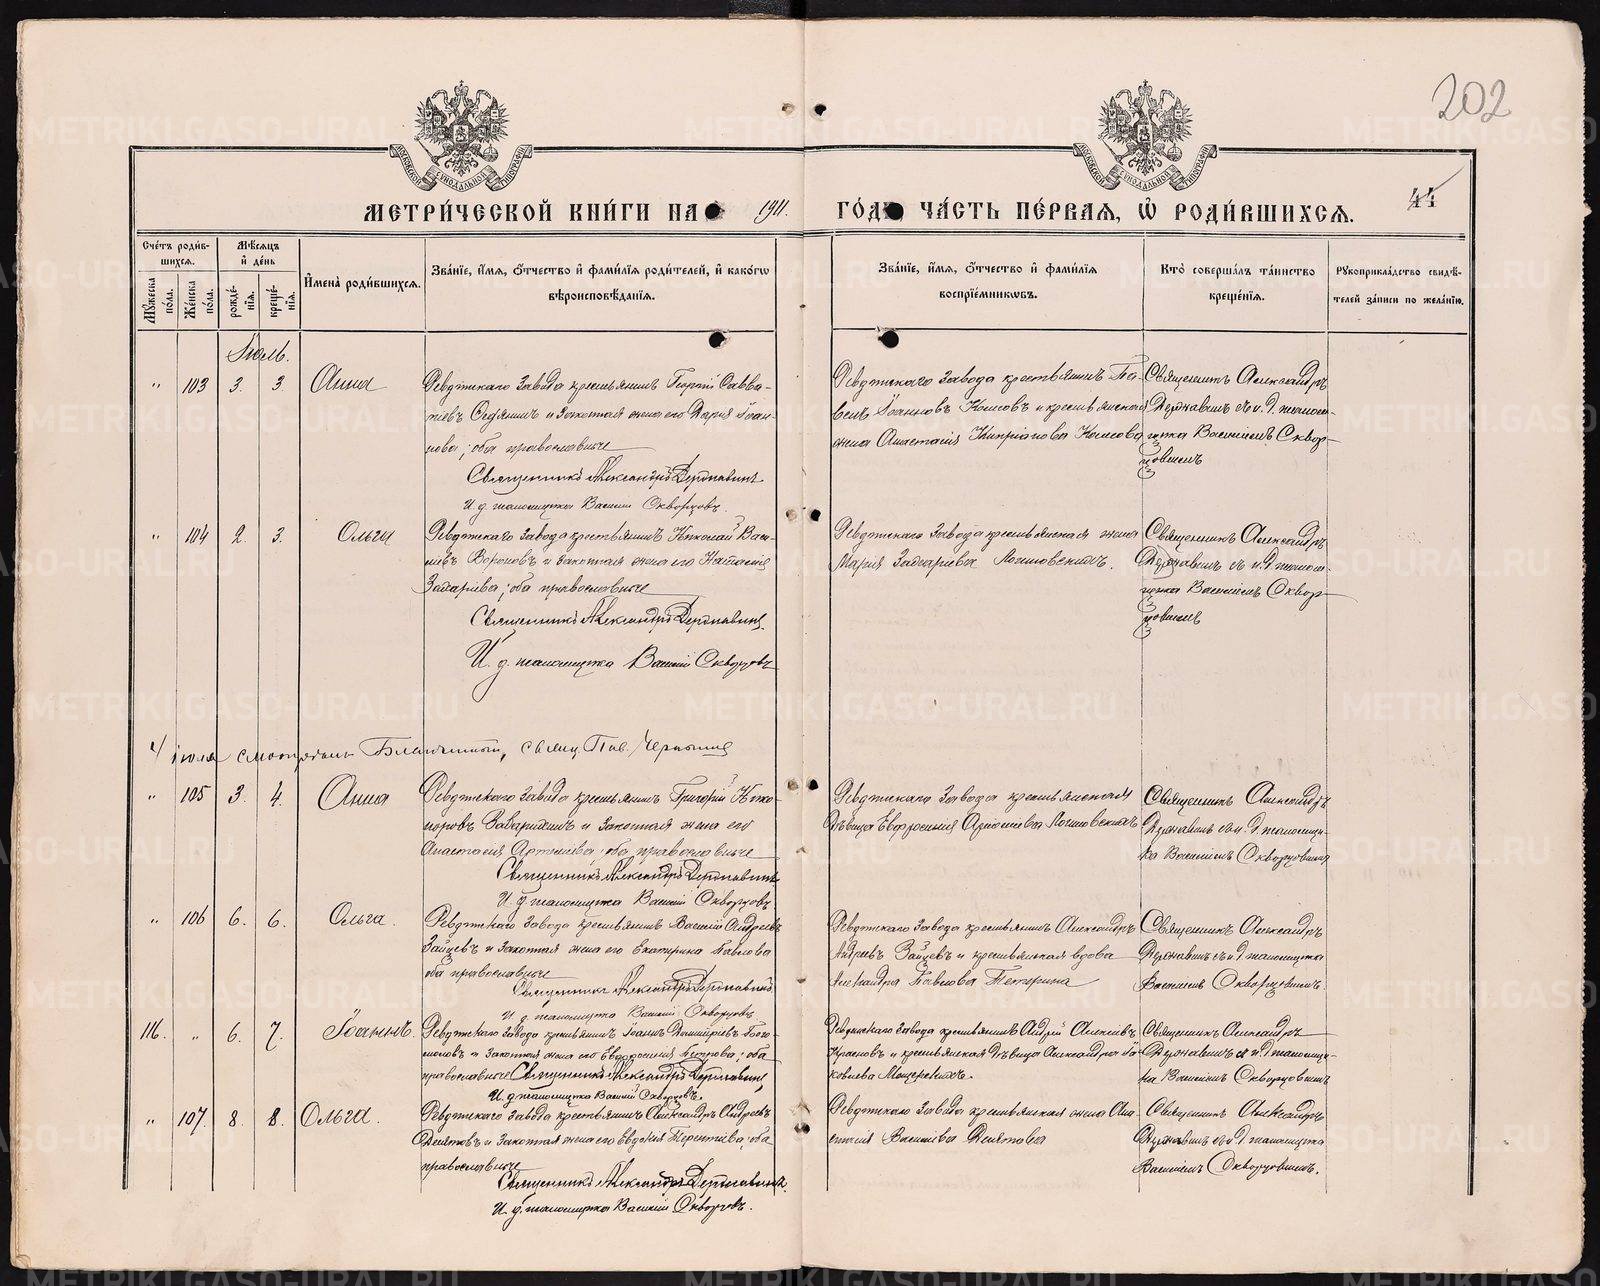 202
МОСКОВСКОЙ СѴНОДАЛЬНОЙ ТИПОГРАФІИ
МОСКОВСКОЙ СѴНОДАЛЬНОЙ ТИПОГРАФІИ
МЕТРИ́ЧЕСКОЙ КНИ́ГИ НА 1911.
ГО́ДЪ ЧА́СТЬ ПЕ́РВАЯ, Ѡ РОДИ́ВШИХСЯ.
44
Сче́тъ роди́вшихся.
Мѣ́сяцъ и де́нь
Мꙋ́жеска по́ла.
Же́нска по́ла.
рожде́нїя.
креще́нїя.
Имена̀ роди́вшихся.
Зва́нїе, и́мя, о́тчество и фами́лїя роди́телей, и како́гѡ вѣроисповѣ́данїя.
Зва́нїе, и́мя, о́тчество и фами́лїя воспрїе́мникѡвъ.
Кто̀ соверша́лъ та́инство креще́нїя.
Рꙋкоприкла́дство свидѣ́телей за́писи по жела́нїю.
Іюль.
" 103 3. 3. Анна
Ревдтскаго завода крестьянинъ Георгій Савва-
тіевъ и законная жена его Дарія Іоан-
нова; оба православные
Священникъ Александръ Державинъ
И. д. псаломщика Василій Скворцовъ.
Ревдтскаго завода крестьянинъ Па-
велъ Іоанновъ Косовъ и крестьянская
жена Анастасія Кипріанова Косова
Священникъ Александръ
Державинъ съ и. д. псалом-
щика Василіемъ Сквор-
цовымъ
" 104 2. 3. Ольга
Ревдтскаго завода крестьянинъ Николай Васи-
ліевъ Вороновъ и законная жена его Наталія
Захаріева; оба православные
Священникъ Александръ Державинъ.
И. д. псаломщика Василій Скворцовъ
Ревдтскаго завода крестьянская жена
Марія Захаріева Логиновскихъ.
Священникъ Александръ
Державинъ съ и. д. псалом-
щика Василіемъ Сквор-
цовымъ
4 іюля Благочинный, свящ.
" 105 3. 4. Анна
Ревдтскаго завода крестьянинъ Григорій Ники-
форовъ и законная жена его
Анастасія Артемьева; оба православные
Священникъ Александръ Державинъ
И. д. псаломщика Василій Скворцовъ
Ревдтскаго завода крестьянская
дѣвица Евфросинія Логиновскихъ
Священникъ Александръ
Державинъ съ и. д. псаломщи-
ка Василіемъ Скворцовымъ
" 106 6. 6. Ольга.
Ревдтскаго завода крестьянинъ Василій Андреевъ
Зайцевъ и законная жена его Екатерина Павлова
оба православные
Священникъ Александръ Державинъ
И. д. псаломщика Василій Скворцовъ.
Ревдтскаго завода крестьянинъ Александръ
Андреевъ Зайцевъ и крестьянская вдова
Александра Павлова
Священникъ Александръ
Державинъ съ и. д. псаломщика
Василіемъ Скворцовымъ.
116. " 6. 7. Іоаннъ.
Ревдтскаго завода крестьянинъ Іоаннъ Димитріевъ Бого-
моловъ и законная жена его Евфросинія Петрова; оба
православные Священникъ Александръ Державинъ,
И. д. псаломщика Василій Скворцовъ.
Ревдтскаго завода крестьянинъ Андрей Алексѣевъ
Красновъ и крестьянская дѣвица Александра Іа-
ковлева
Священникъ Александръ
Державинъ съ и. д. псаломщи-
ка Василіемъ Скворцовымъ
" 107. 8. 8. Ольга.
Ревдтскаго завода крестьянинъ Александръ Андреевъ
и законная жена его Евдокія Терентіева; оба
православные
Священникъ Александръ Державинъ.
И. д. псаломщика Василій Скворцовъ.
Ревдтскаго завода крестьянская жена Ана-
стасія Василіева
Священникъ Александръ
Державинъ съ и. д. псаломщика
Василіемъ Скворцовымъ.
METRIKI.GASO-URAL.RU